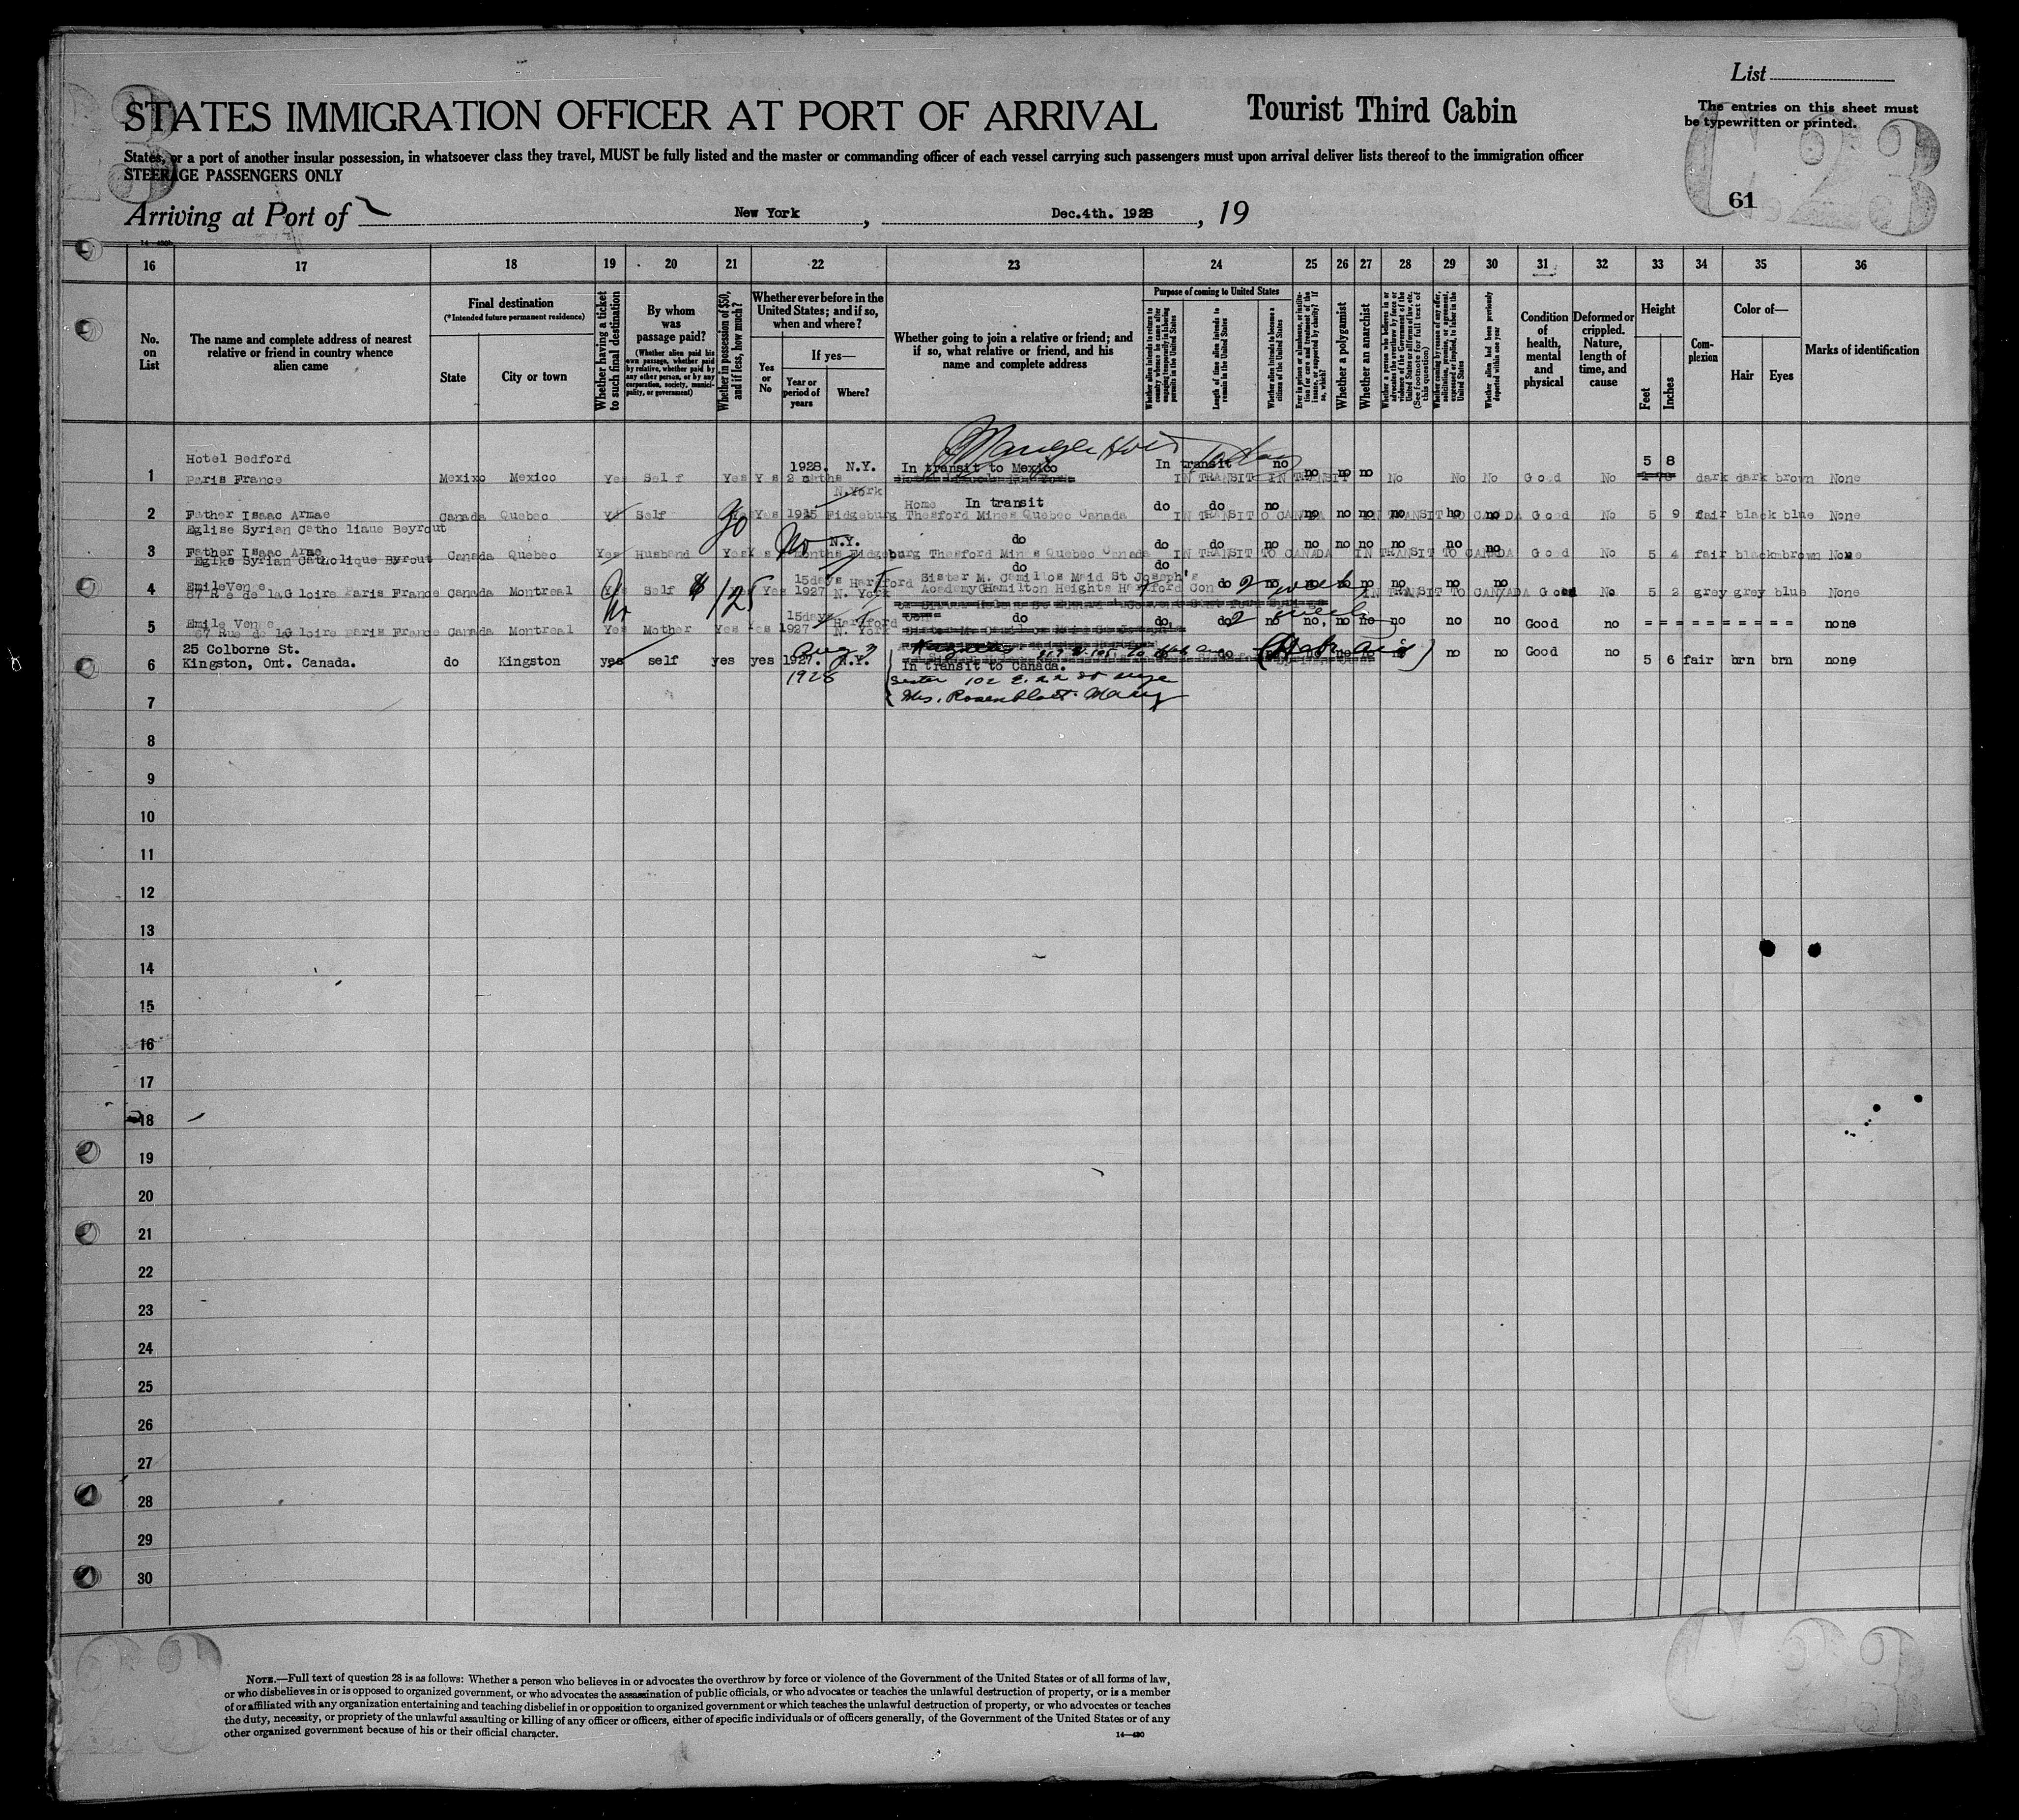 List
STATES IMMIGRATION OFFICER AT PORT OF ARRIVAL
Tourist Third Cabin
The entries on this sheet must
be typewritten or printed.
States, or a port of another insular possession, in whatsoever class they travel, MUST be fully listed and the master or commanding officer of each vessel carrying such passengers must upon arrival deliver lists thereof to the immigration officer
STEERAGE PASSENGERS ONLY
C 23
61
Arriving at Port of New York, Dec.4th. 1928, 19
16 17 18 19 20 21 22 23 24 25 26 27 28 29 30 31 32 33 34 35 36
No. on List
The name and complete address of nearest relative or friend in country whence alien came
Final destination
(*Intended future permanent residence)
State
City or town
Whether having a ticket to such final destination
By whom was passage paid?
(Whether alien paid his own passage, whether paid by relative, whether paid by any other person, or by any corporation, society, municipality, or government)
Whether in possession of $50, and if less, how much?
Whether ever before in the United States; and if so, when and where?
Yes or No
If yes—
Year or period of years
Where?
Whether going to join a relative or friend; and if so, what relative or friend, and his name and complete address
Purpose of coming to United States
Whether alien intends to return to country whence he came after engaging temporarily in laboring pursuits in the United States
Length of time alien intends to remain in the United States
Whether alien intends to become a citizen of the United States
Ever in prison or almshouse, or institution for care and treatment of the insane, or supported by charity? If so, which?
Whether a polygamist
Whether an anarchist
Whether a person who believes in or advocates the overthrow by force or violence of the Government of the United States or all forms of law, etc. (See footnote for full text of this question)
Whether coming by reason of any offer, solicitation, promise, or agreement, expressed or implied, to labor in the United States
Whether alien had been previously deported within one year
Condition of health, mental and physical
Deformed or crippled. Nature, length of time, and cause
Height
Feet
Inches
Complexion
Color of—
Hair
Eyes
Marks of identification
Hotel Bedford
1 Paris France Mexixo Mexico Yes Self Yes Y s 1928. 2 mnths N.Y. In transit to Mexico In transit no IN TRANSIT IN TRANSIT no no no No No No Good No 5 8 dark dark brown None
N.York
2 Father Isaac Armae Canada Quebec Self Yes 1925 Fidgeburg Home In transit Thesford Mines Quebec Canada do do no no no no no no Good No 5 9 fair black blue None
Eglise Syrian Catho liaue Beyrout
3 Father Isaac Arme Canada Quebec Yes Husband Yes Yes No months N.Y. Fidgeburg do Thesford Mines Quebec Canada do do no no no no no no no Good No 5 4 fair black brown None
Eglke Syrian Catholique Byrout
4 Emile Venne Canada Montreal Self $ 125 Yes 15days 1927 Hartford N. York Sister M. Camillos Maid St Joseph's Academy Hamilton Heights Hartford Con do 2 week no no no no no no no IN TRANSIT TO CANADA Good No 5 2 grey grey blue None
67 Rue de la G loire Paris France
5 Emile Venne Canada Montreal Yes Mother Yes Yes 15days 1927 Hartford N. York do do do 2 week no no, no no no no no Good no none
67 Rue de la G loire Paris France
25 Colborne St.
6 Kingston, Ont. Canada. do Kingston yes self yes yes Aug 1927. N.Y. 1928 In transit to Canada. no no Good no 5 6 fair brn brn none
Sister 102 E. 22 st
7 Mrs. Rosenblatt Mary
8
9
10
11
12
13
14
15
16
17
18
19
20
21
22
23
24
25
26
27
28
29
30
NOTE.—Full text of question 28 is as follows: Whether a person who believes in or advocates the overthrow by force or violence of the Government of the United States or of all forms of law,
or who disbelieves in or is opposed to organized government, or who advocates the assassination of public officials, or who advocates or teaches the unlawful destruction of property, or is a member
of or affiliated with any organization entertaining and teaching disbelief in or opposition to organized government or which teaches the unlawful destruction of property, or who advocates or teaches
the duty, necessity, or propriety of the unlawful assaulting or killing of any officer or officers, either of specific individuals or of officers generally, of the Government of the United States or of any
other organized government because of his or their official character.
14—430
C 23